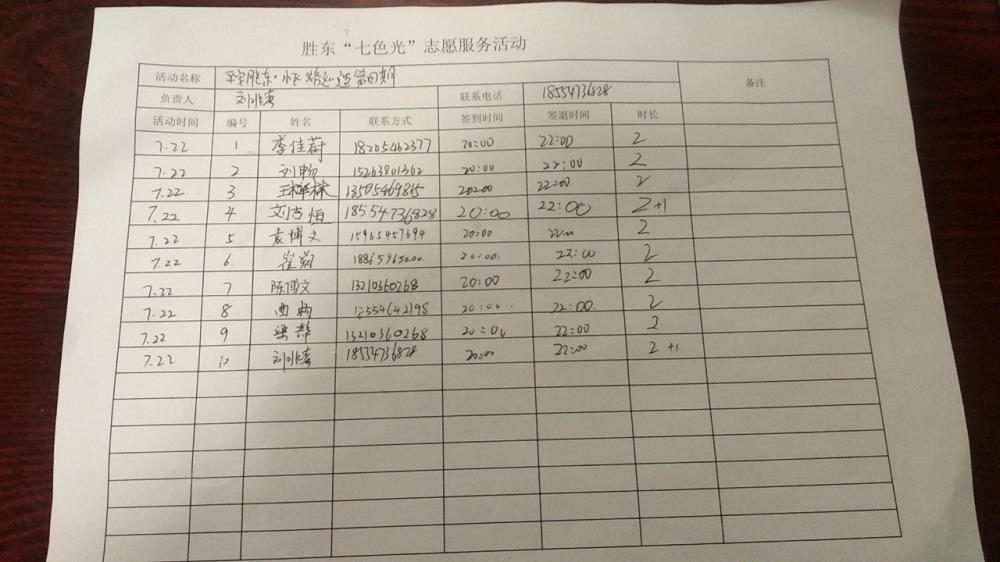 胜东“七色光”志愿服务活动
活动名称 平安胜东· 第四期 备注
负责人 联系电话 18554736828
活动时间 编号 姓名 联系方式 签到时间 签退时间 时长
7.22 1 李佳蔚 18205462377 20:00 22:00 2
7.22 2 刘畅 15263801362 20:00 22:00 2
7.22 3 13505469815 20:00 22:00 2
7.22 4 18554736828 20:00 22:00 2+1
7.22 5 袁博文 15965457694 20:00 22:00 2
7.22 6. 崔 18865965200. 20:00. 22:00 2
7.22 7 陈博文 13210360268 20:00 22:00 2
7.22 8 20:00. 22:00. 2
7.22 9 梁 13210360268 20:00 22:00 2
7.22 10 18554736828 20:00 22:00 2 +1